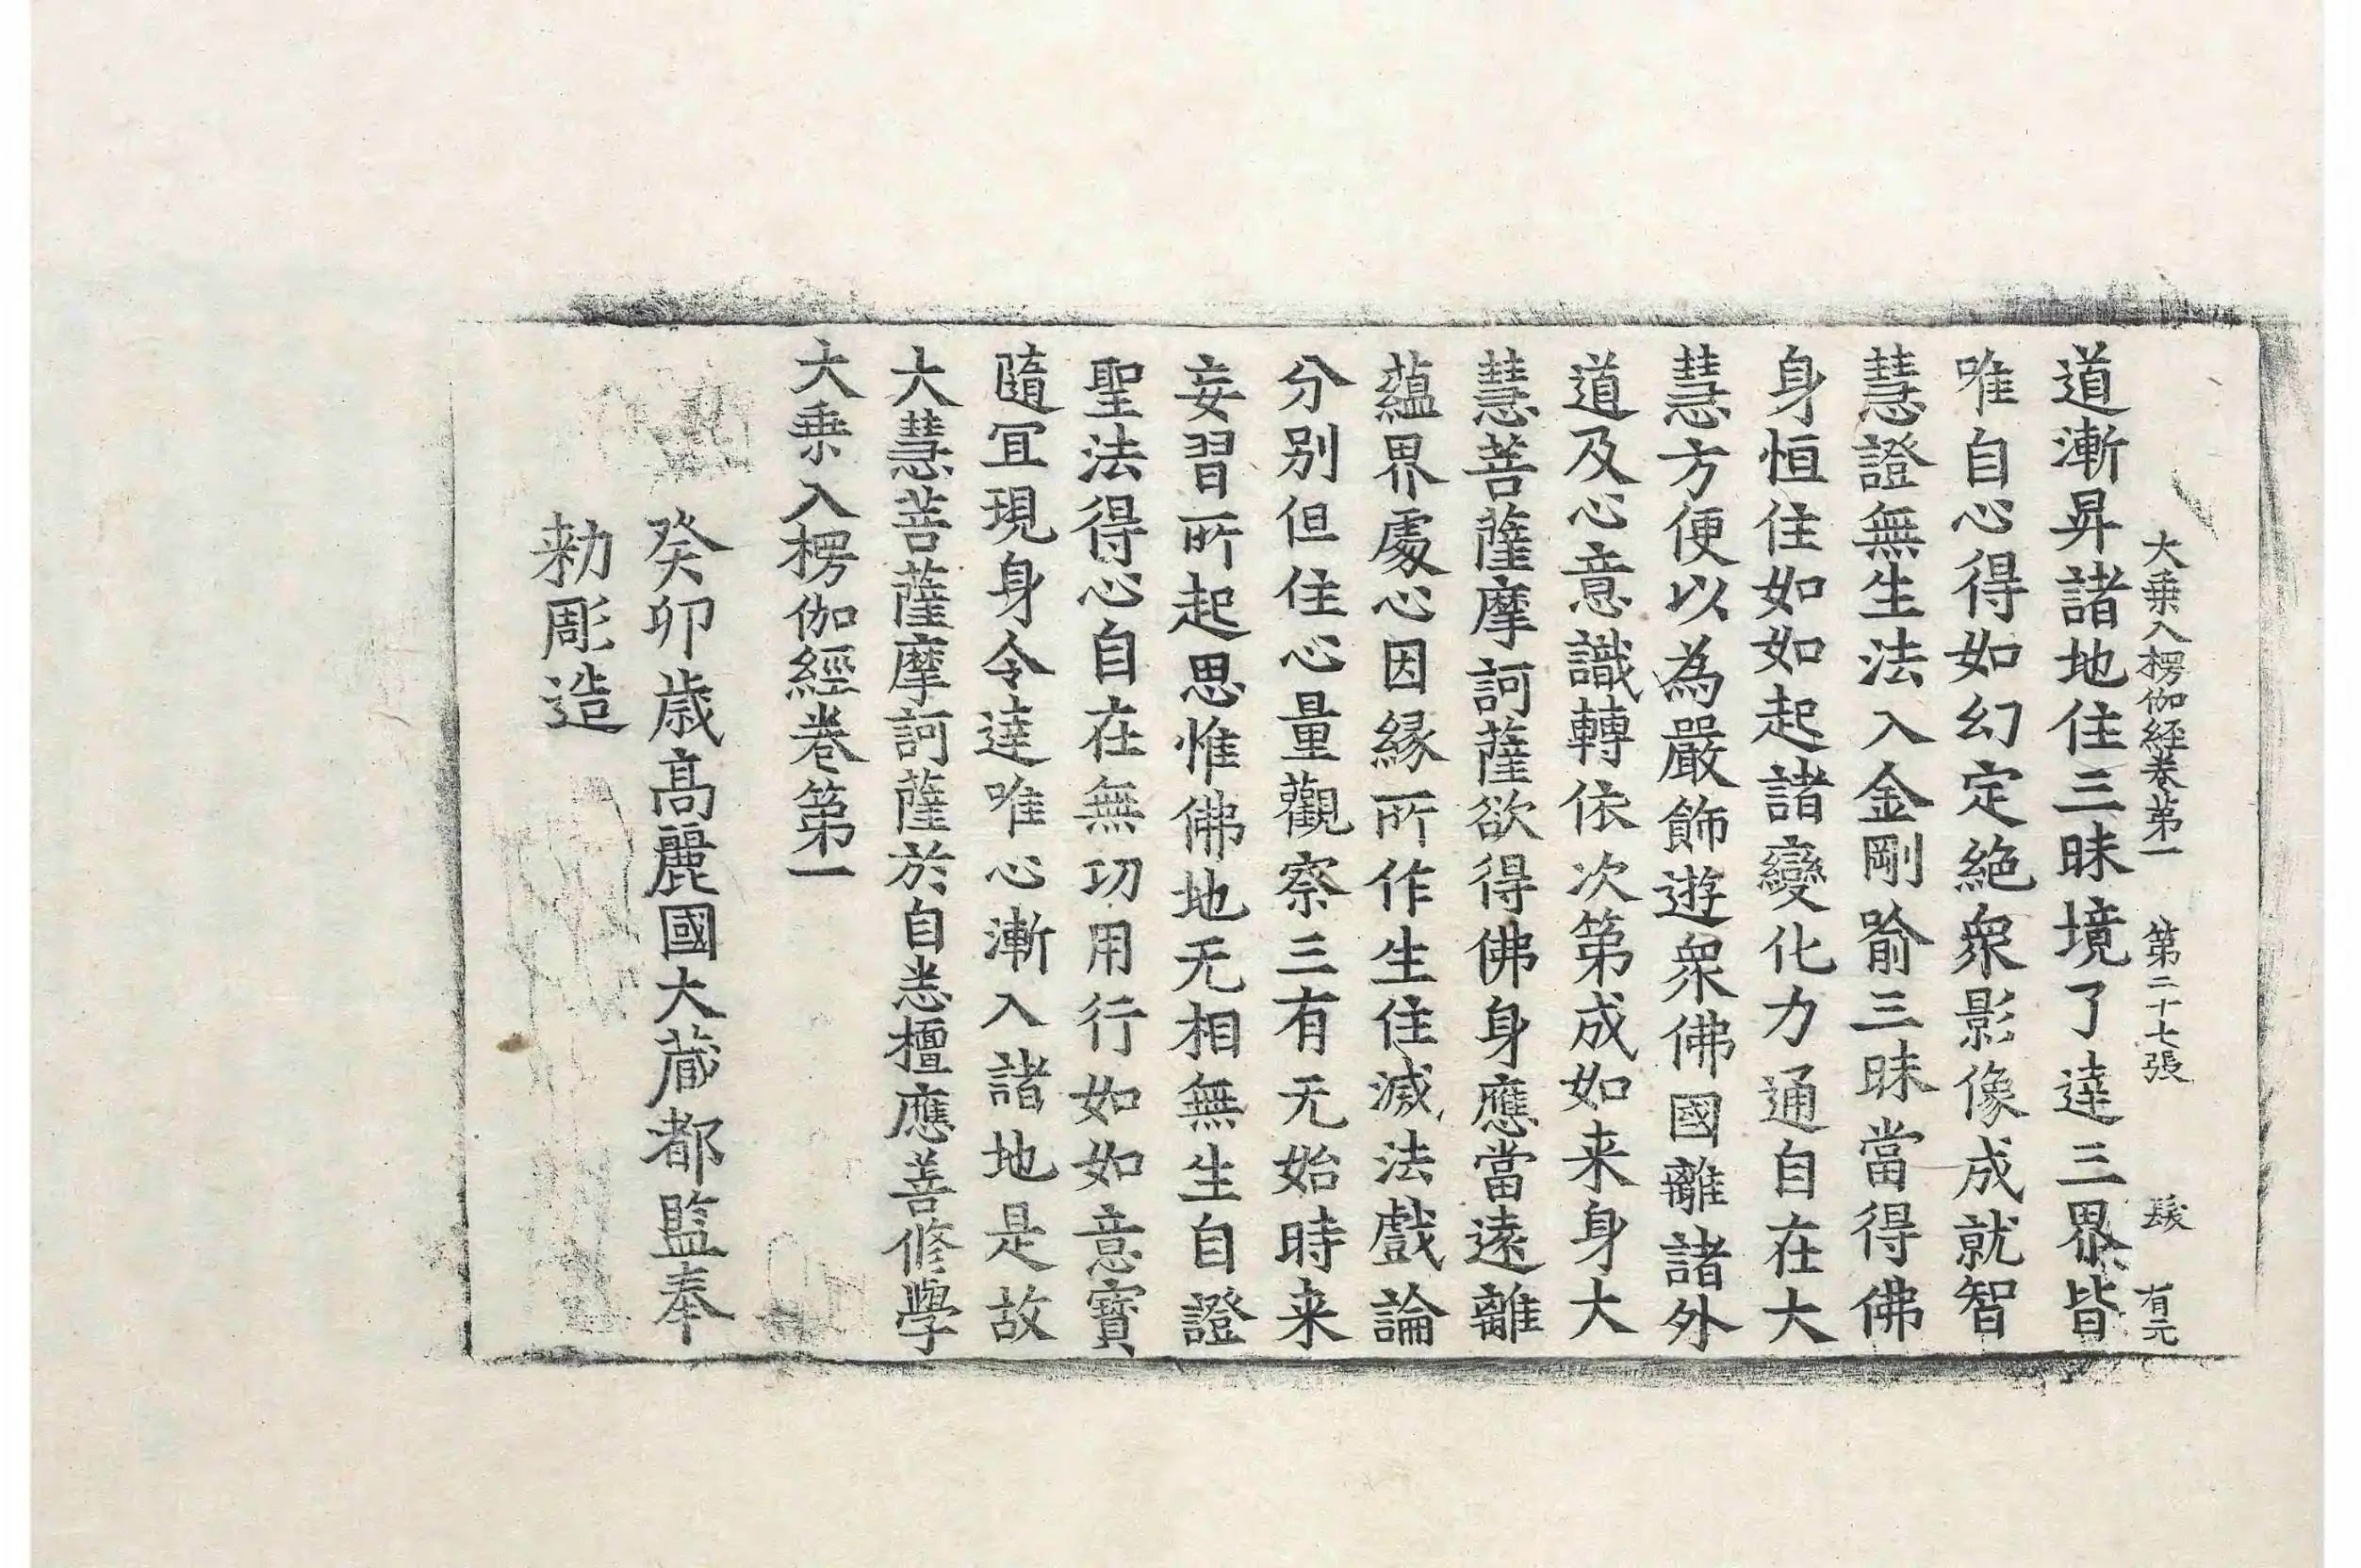 大乗入楞伽経卷第一 第二十七張 髮 有元
道漸昇諸地住三昧境了達三界皆
唯自心得如幻定絶衆影像成就智
慧證無生法入金剛喻三昧當得佛
身恒住如如起諸變化力通自在大
慧方便以為嚴飾遊衆佛國離諸外
道及心意識轉依次第成如来身大
慧菩薩摩訶薩欲得佛身應當遠離
蘊界處心因緣所作生住滅法戲論
分别但住心量觀察三有无始時来
妄習所起思惟佛地无相無生自證
聖法得心自在無功用行如如意寶
隨冝現身令達唯心漸入諸地是故
大慧菩薩摩訶薩於自悉檀應善修學
大乗入楞伽經卷第一
癸卯歳高麗國大藏都監奉
勑彫造